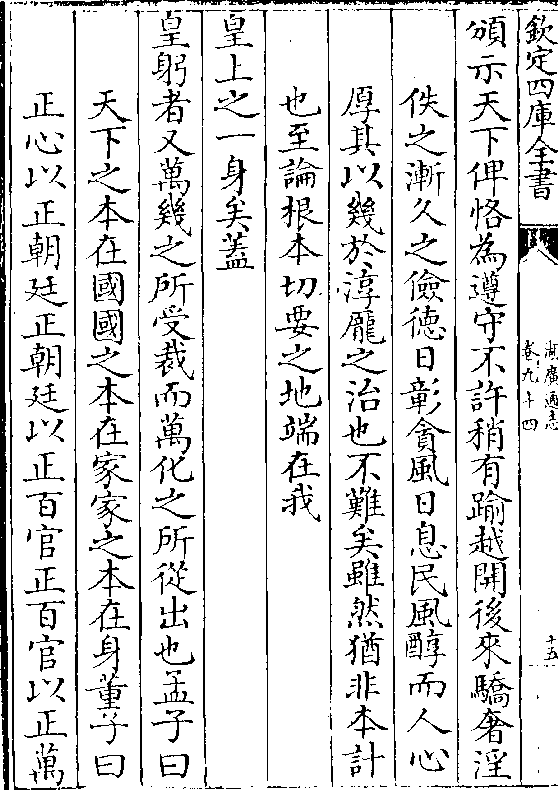 欽定四庫全書
湖廣通志
卷九十四
十五
頒示天下俾恪為遵守不許稍有踰越開後來驕奢淫
佚之漸久之儉德日彰貪風日息民風醇而人心
厚其以幾於淳龎之治也不難矣雖然猶非本計
也至論根本切要之地端在我
皇上之一身矣蓋
皇躬者又萬幾之所受裁而萬化之所從出也孟子曰
天下之本在國國之本在家家之本在身董子曰
正心以正朝廷正朝廷以正百官正百官以正萬